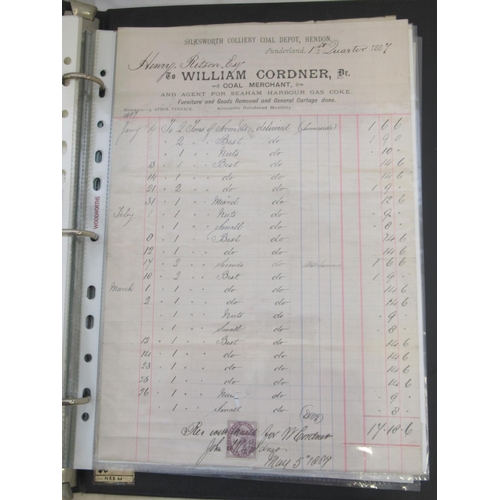 SILKSWORTH COLLIERY COAL DEPOT, HENDON,
Sunderland, 1st Quarter 1887
Henry Ritson Esq
To WILLIAM CORDNER, Dr.
COAL MERCHANT,
AND AGENT FOR SEAHAM HARBOUR GAS COKE.
Furniture and Goods Removed and General Cartage done.
Accounts Rendered Monthly
1887
To 2 Tons of delivered 1 6 6
2 Best do 1 9 0
1 Nuts do 10
13 1 Best do 14 6
14 1 do do 14 6
21 2 do do 1 9
31 1 do 12 6
Feby 1 Nuts do 9
1 Small do 8
8 1 Best do 14 6
12 1 do do 14 6
2 do 6 6
18 2 Best do 1 9
March 1 1 do do 14 6
2 1 do do 14 6
1 Nuts do 9
1 Small do 8
12 1 Best do 14 6
14 1 do do 14 6
23 1 do do 14 6
25 1 do do 14 6
26 1 Nuts do 9
1 Small do 8
17 18 6
for W Cordner
John
May 5th 1887
WOOLWORTHS